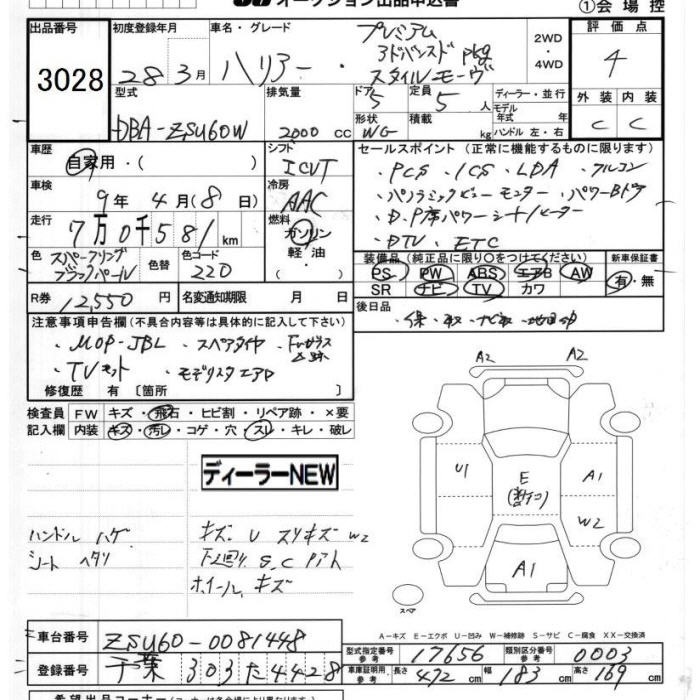 オークション出品申込書
①会場控
出品番号 3028
初度登録年月 28 3月
車名・グレード ハリアー・プレミアム
スタイルモーヴ
2WD・4WD
評価点 4
外装 C 内装 C
型式 DBA-ZSU60W
排気量 2000 CC
ドア 5
定員 5 人
形状 WG
積載 kg
ディーラー・並行
モデル年式 年式
ハンドル 左・右
車歴 自家用・( )
シフト ICVT
セールスポイント (正常に機能するものに限ります)
・PCS ・ICS ・LDA ・フルコン
・パノラミックビューモニター ・パワーBドア
・D.P席パワーシート/ヒーター
・DTV ・ETC
車検 9年 4月(8日)
冷房 AAC
走行 7万0千581km
燃料 ガソリン・軽油
色 スパークリングブラックパール
色替
色コード 220
装備品 (純正品に限り○をつけてください)
PS PW ABS エアB AW
SR ナビ TV カワ
新車保証書 有・無
R券 12,550円
名変通知期限 月 日
後日品
・保・取・ナビ取
注意事項申告欄 (不具合内容等は具体的に記入して下さい)
・MOP-JBL ・スペアタイヤ
・TVキット ・モデリスタエアロ
修復歴 有 [箇所 ]
検査員記入欄 FW キズ・飛石・ヒビ割・リペア跡・×要
内装 キズ・汚レ・コゲ・穴・スレ・キレ・破レ
ディーラーNEW
ハンドル ハゲ
シート ヘタリ
キズ U スリキズ W2
下回り S,C アト
ホイールキズ
A2 A2
U1 E A1
W2
A1
スペア
A-キズ E-エクボ U-凹み W-補修跡 S-サビ C-腐食 XX-交換済
車台番号 ZSU60-0081448
型式指定番号 参考 17656
類別区分番号 参考 0003
登録番号 千葉 303 た 4428
車庫証明用 参考 長さ 472 cm 幅 183 cm 高さ 169 cm
希望出品コーナー